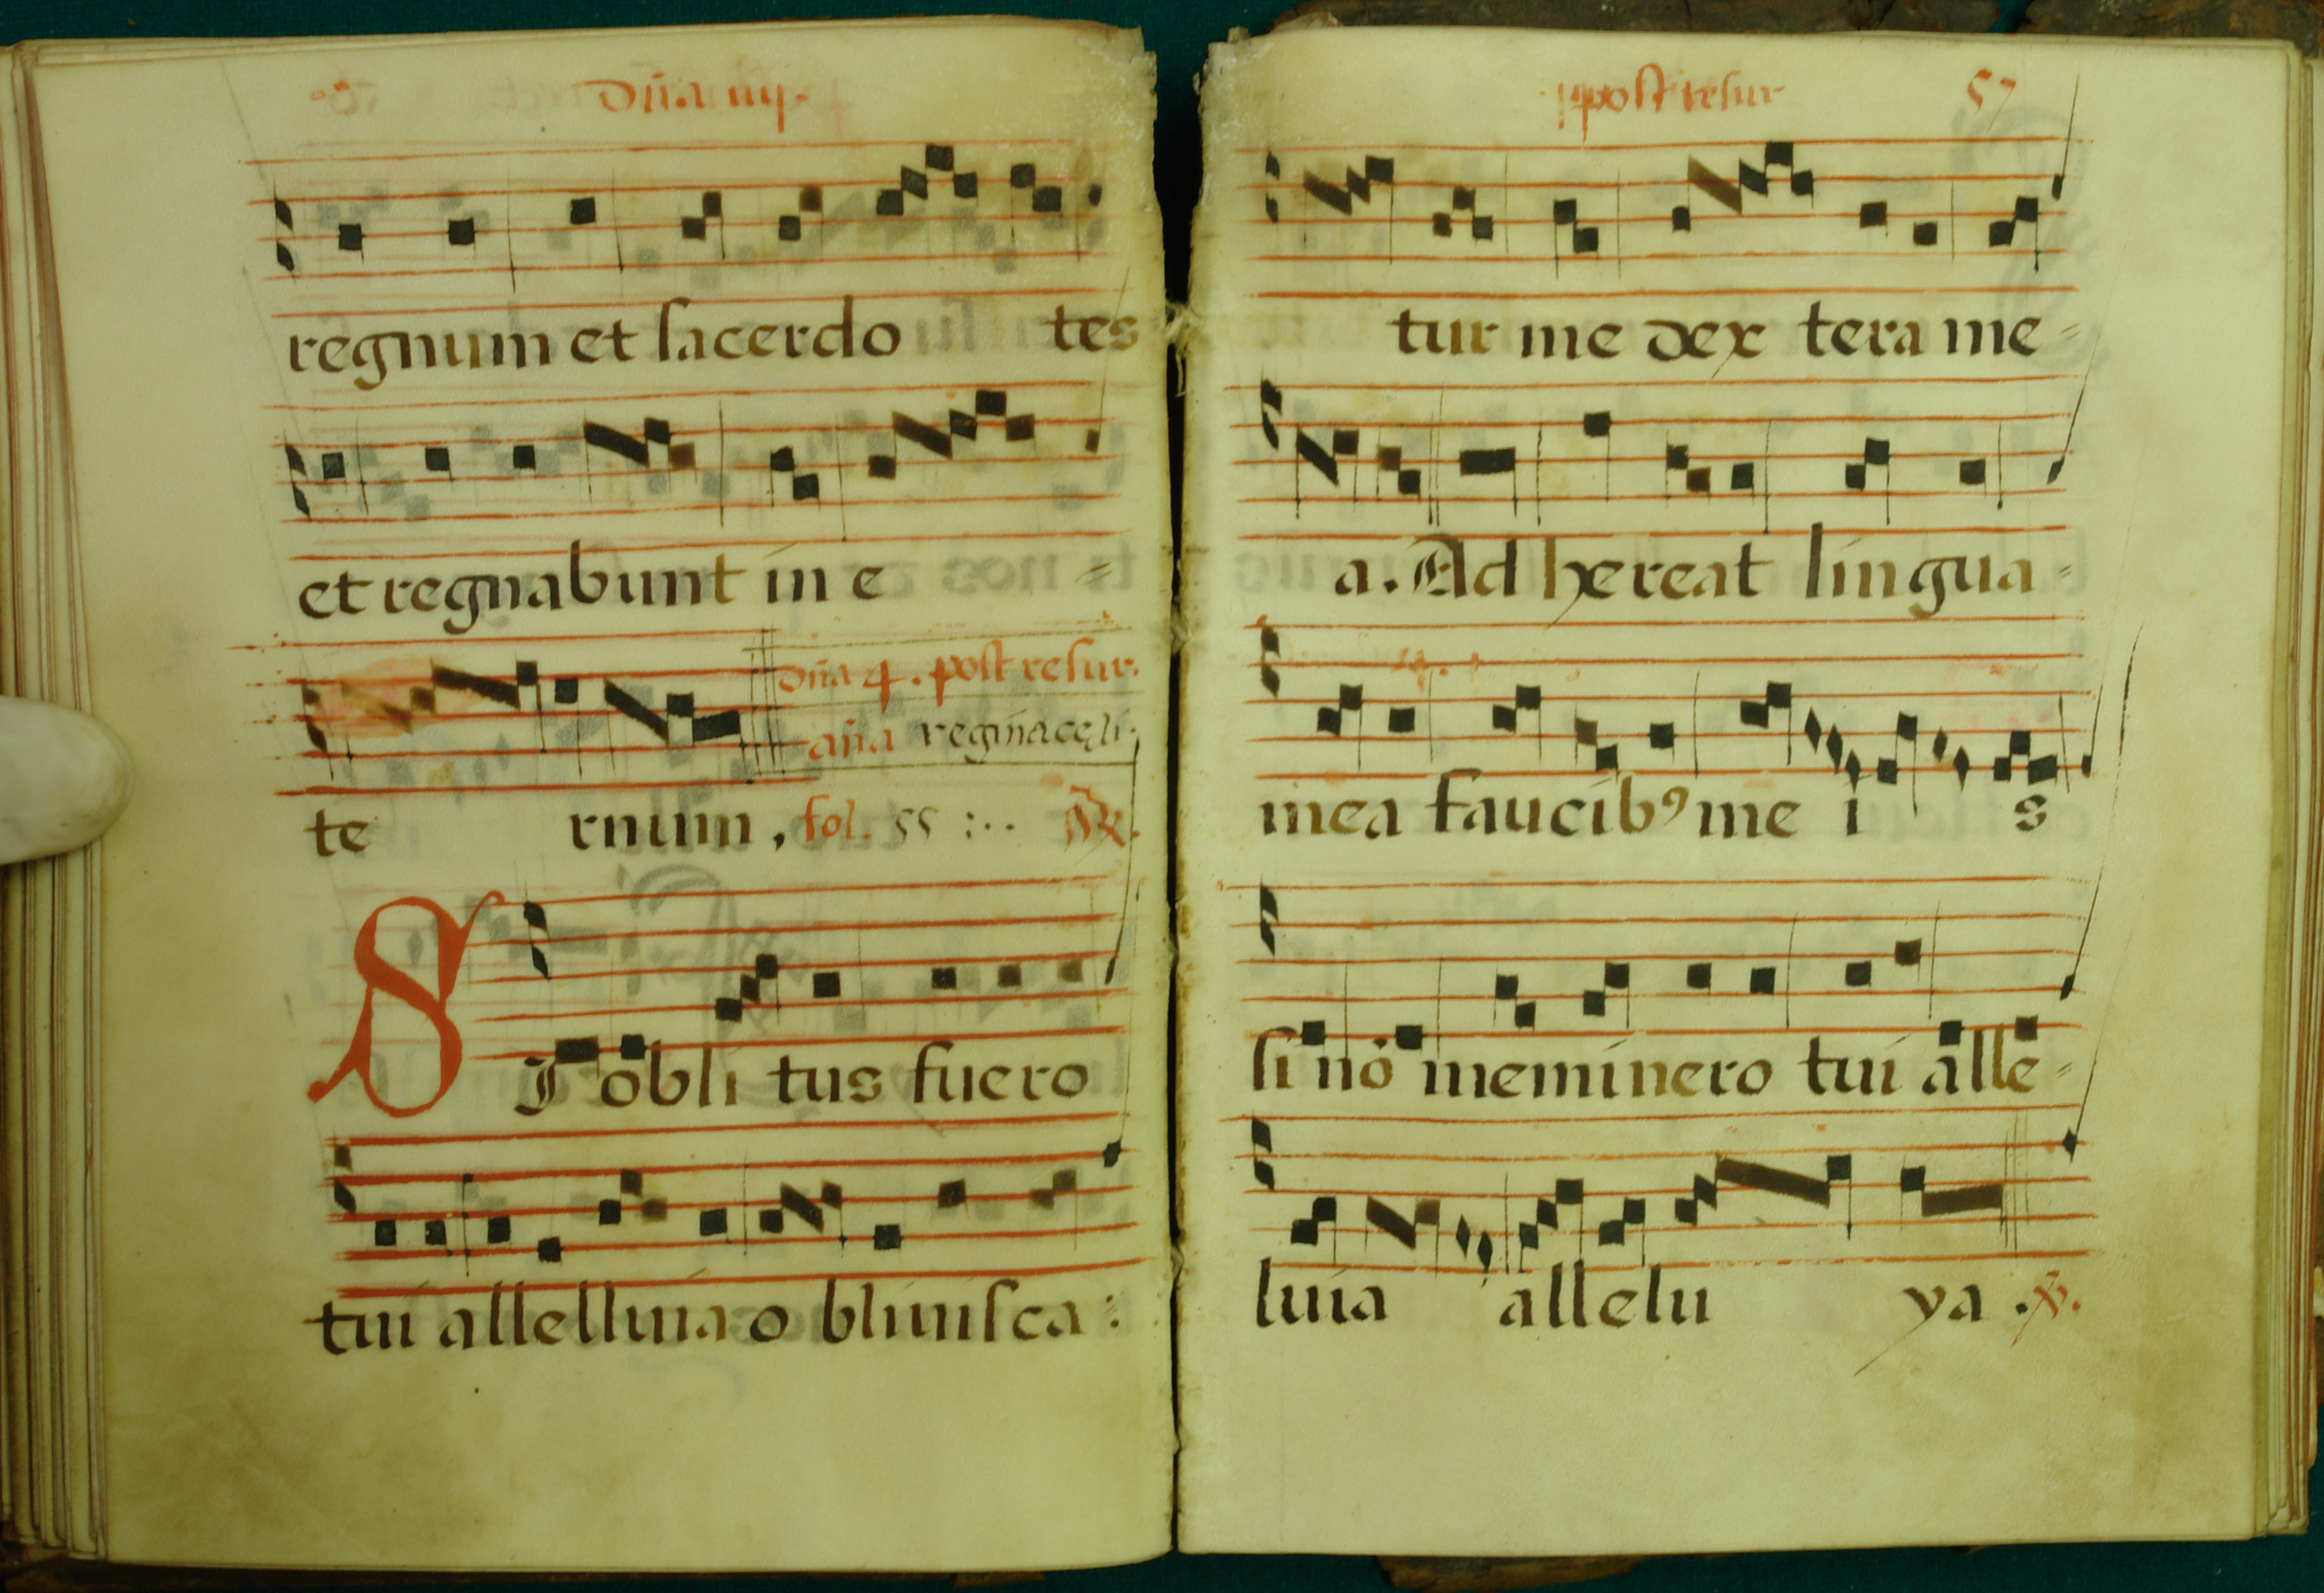 dña iiij.
regnum et sacerdo tes
et regnabunt in e =
dña 4. post resur.
aña reginacęli.
te rnum, fol. 55 :..
SI obli tus fuero
tui allelluia o bliuisca :
post resur 57
tur me dex tera me=
a. Ad hereat lingua=
mea faucibꝰ me i s
si nō meminero tui alle=
luia allelu ya . ℣.